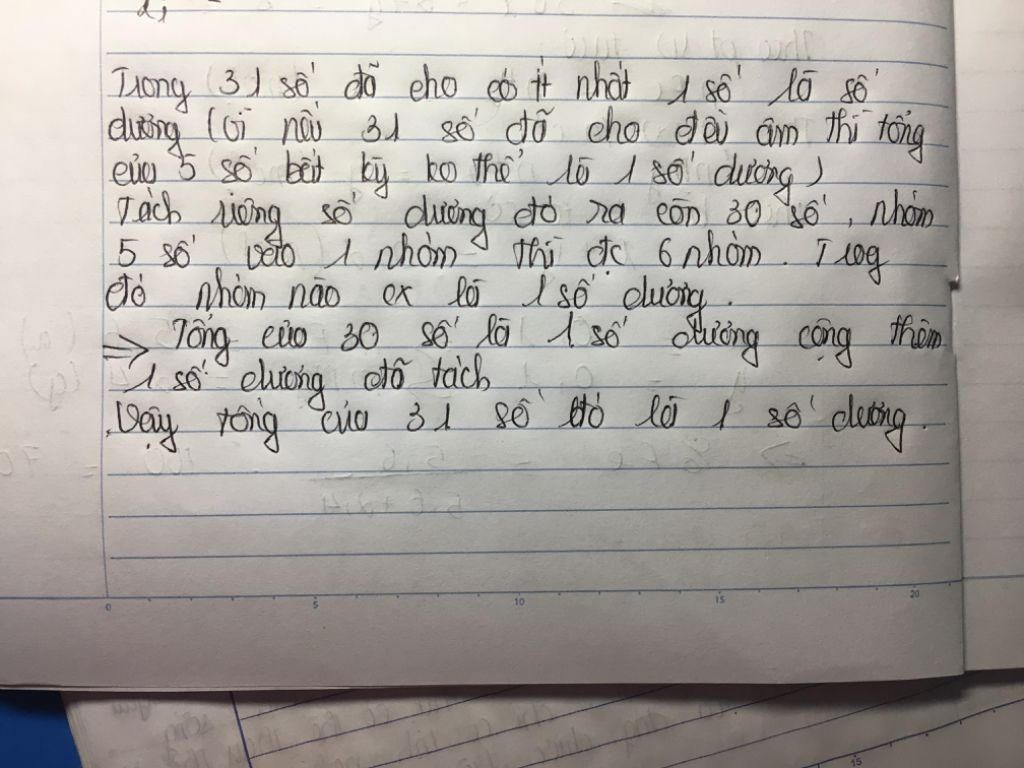 Trong 31 số đã cho có ít nhất 1 số là số
dương (vì nếu 31 số đã cho đều âm thì tổng
của 5 số bất kỳ ko thể là 1 số dương)
Tách riêng số dương đó ra còn 30 số, nhóm
5 số vào 1 nhóm thì đc 6 nhóm. Trog
đó nhóm nào cx là 1 số dương.
=> Tổng của 30 số là 1 số dương cộng thêm
1 số dương đã tách
Vậy tổng của 31 số đó là 1 số dương.
0 5 10 15 20
15